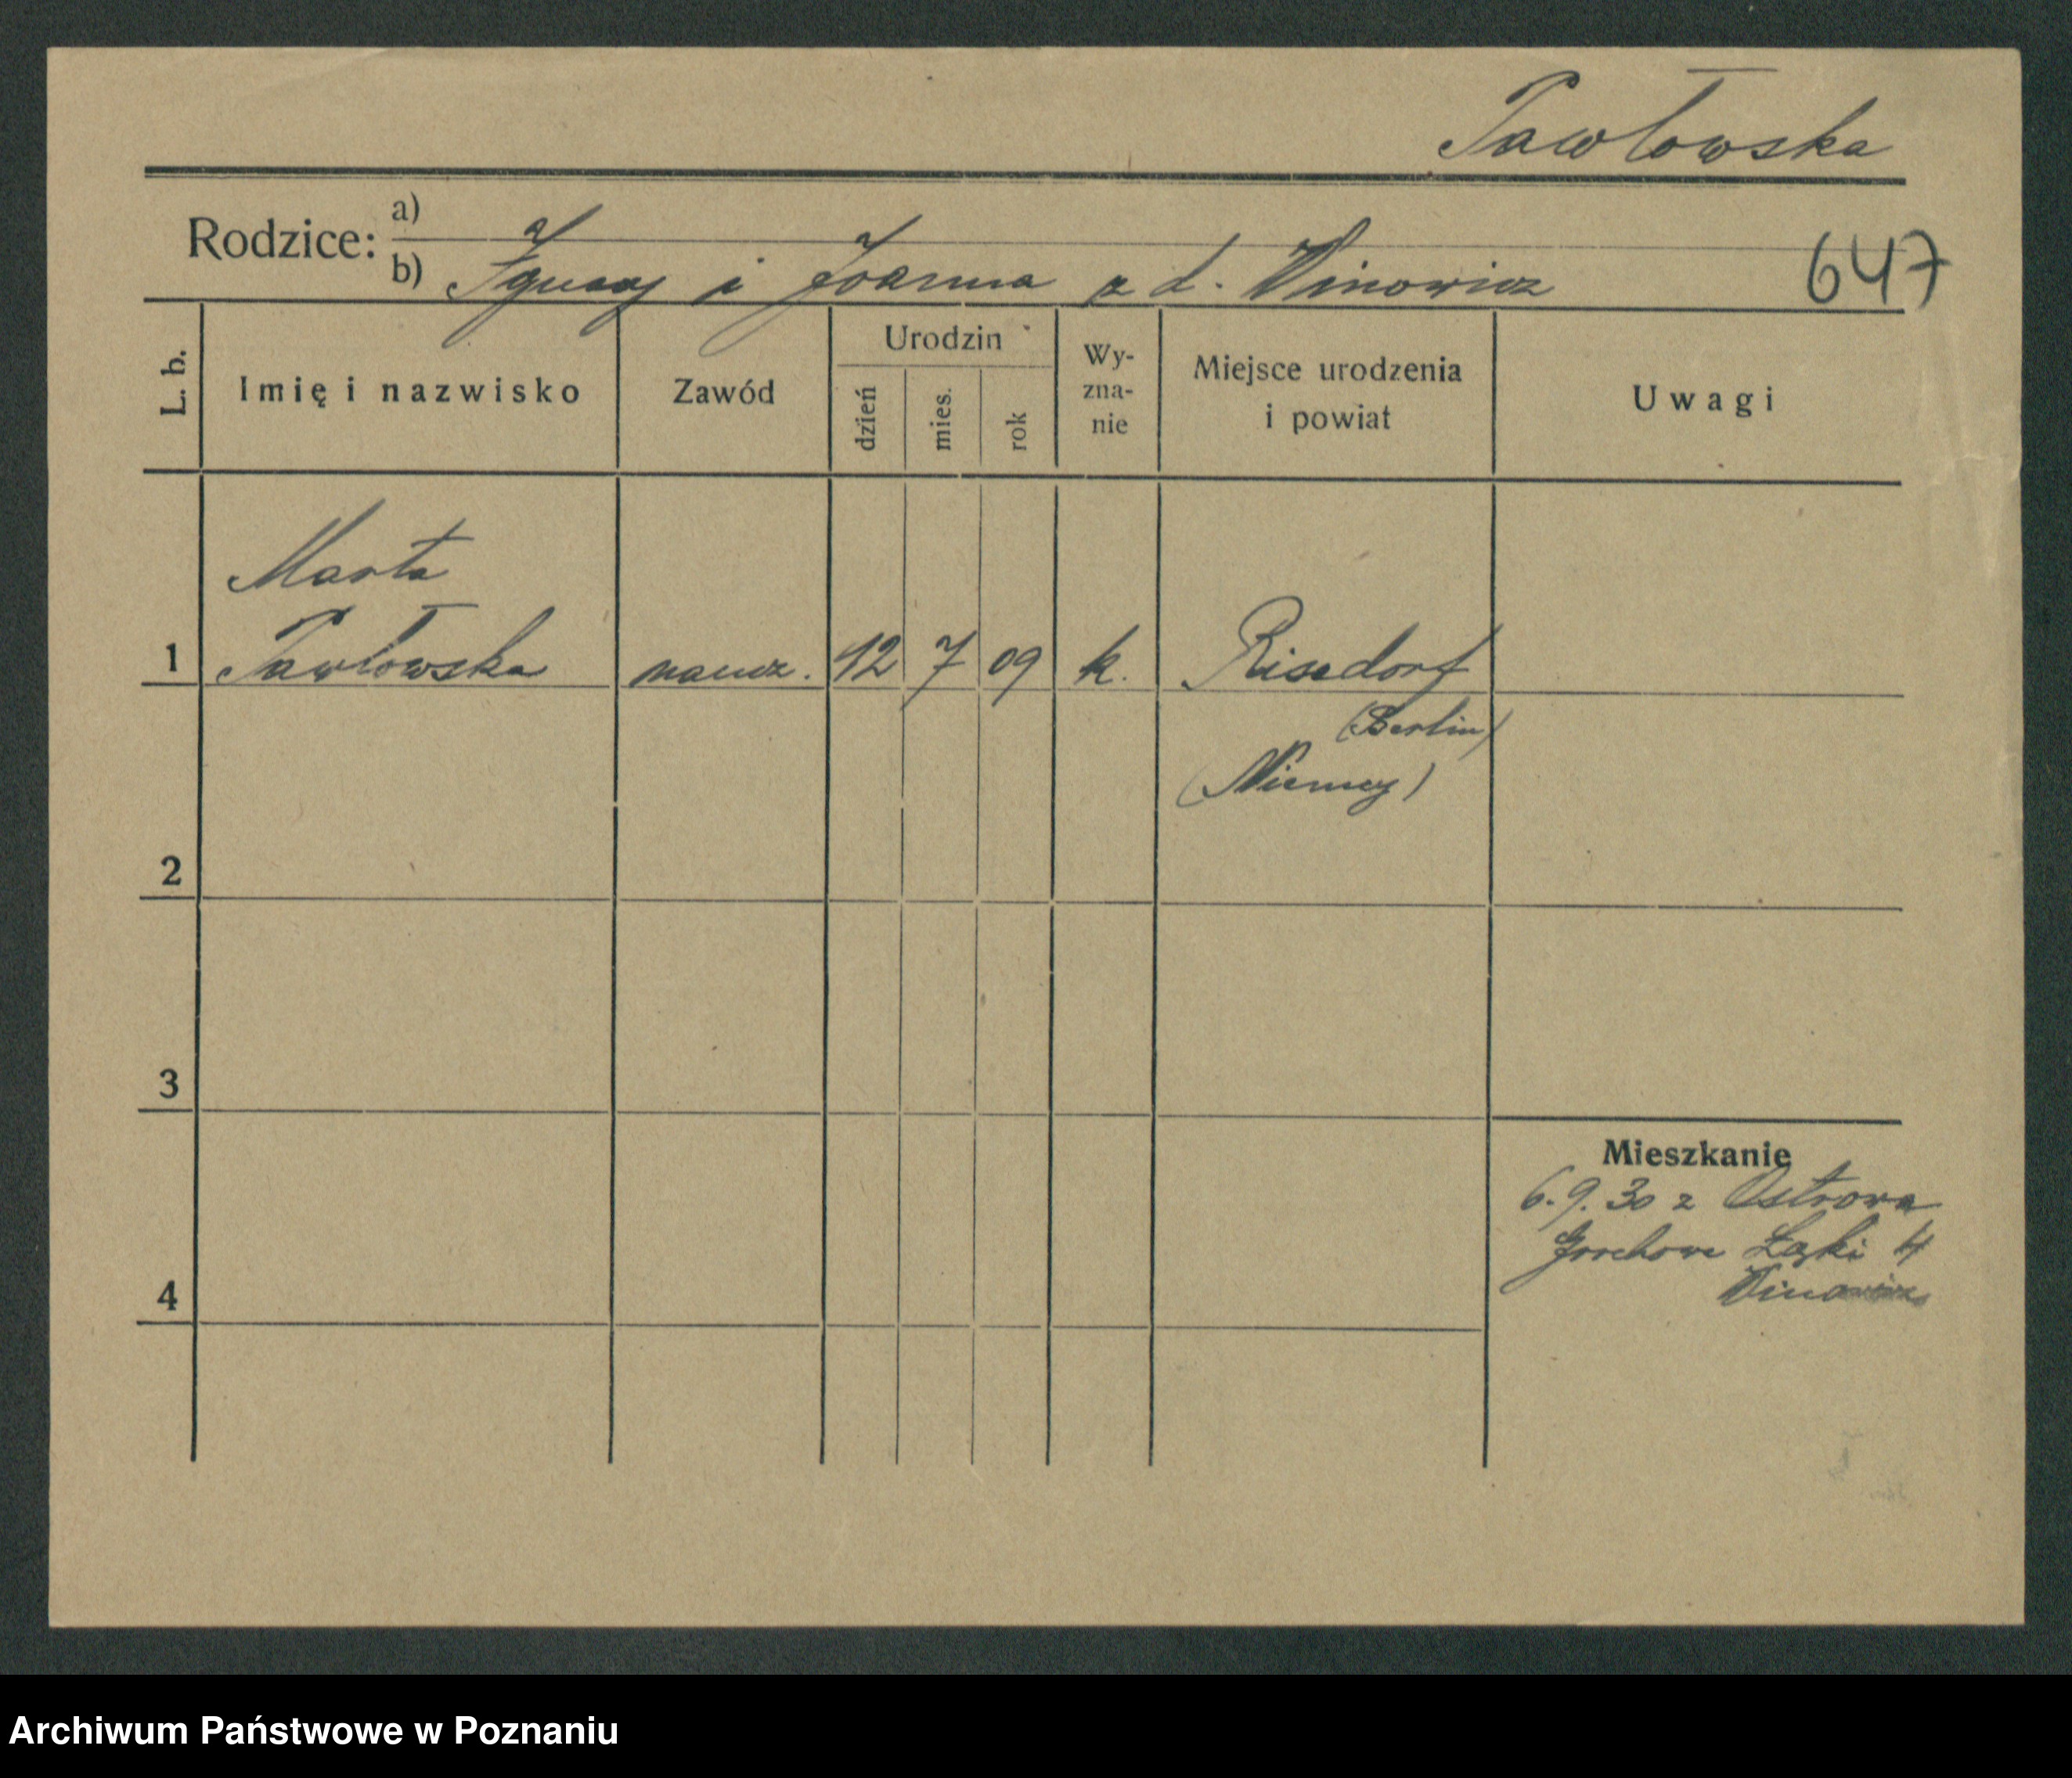 Pawłowska
Rodzice: a)
b) Ignacy i Joanna z d. Winowicz
647
L. b.
Imię i nazwisko
Zawód
Urodzin
dzień
mies.
rok
Wy-
zna-
nie
Miejsce urodzenia
i powiat
Uwagi
Marta
1 Pawłowska naucz. 12 7 09 k. Risedorf
(Berlin)
(Niemcy)
2
3
Mieszkanie
6. 9. 30 z Ostrowa
Łąki 4
4
Archiwum Państwowe w Poznaniu